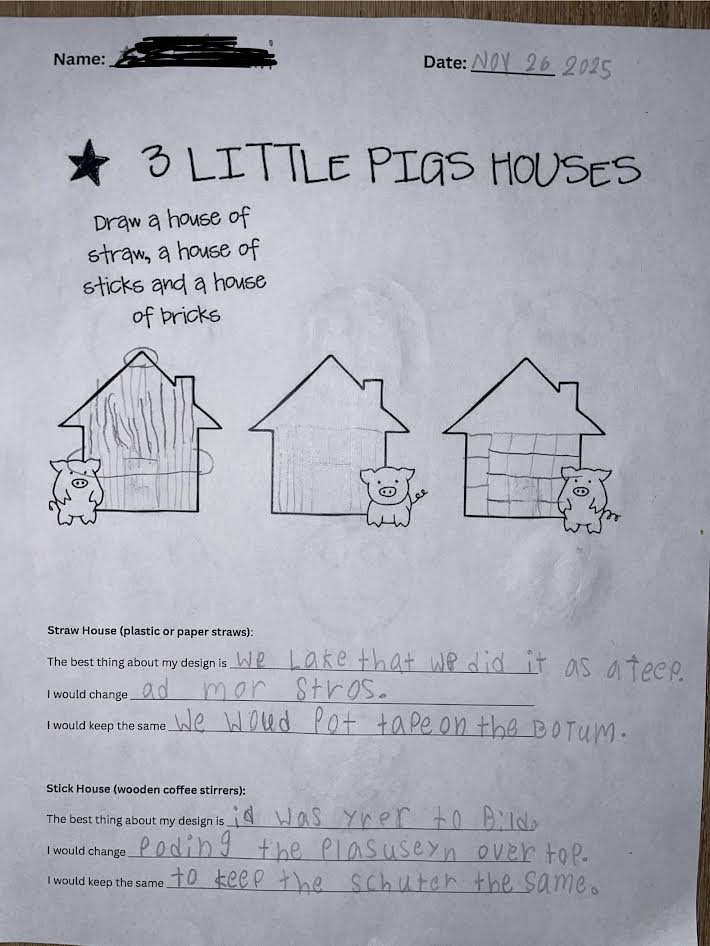 Name:
Date: NOV 26 2025
3 LITTLE PIGS HOUSES
Draw a house of
straw, a house of
sticks and a house
of bricks
Straw House (plastic or paper straws):
The best thing about my design is We Lake that we did it as a teep.
I would change ad mor stros.
I would keep the same We Woud Pot tape on the BOTUM.
Stick House (wooden coffee stirrers):
The best thing about my design is id was yrer to Bild.
I would change Poding the Plasuseyn over top.
I would keep the same to keep the schuter the same.